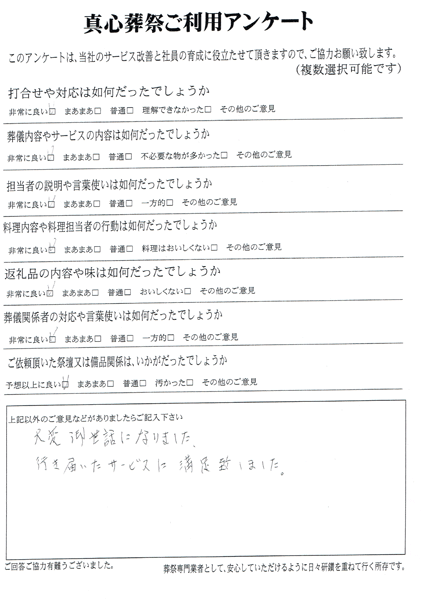 真心葬祭ご利用アンケート
このアンケートは、当社のサービス改善と社員の育成に役立たせて頂きますので、ご協力お願い致します。
(複数選択可能です)
打合せや対応は如何だったでしょうか
非常に良い☑ まあまあ□ 普通□ 理解できなかった□ その他のご意見
葬儀内容やサービスの内容は如何だったでしょうか
非常に良い☑ まあまあ□ 普通□ 不必要な物が多かった□ その他のご意見
担当者の説明や言葉使いは如何だったでしょうか
非常に良い☑ まあまあ□ 普通□ 一方的□ その他のご意見
料理内容や料理担当者の行動は如何だったでしょうか
非常に良い☑ まあまあ□ 普通□ 料理はおいしくない□ その他のご意見
返礼品の内容や味は如何だったでしょうか
非常に良い☑ まあまあ□ 普通□ おいしくない□ その他のご意見
葬儀関係者の対応や言葉使いは如何だったでしょうか
非常に良い☑ まあまあ□ 普通□ 一方的□ その他のご意見
ご依頼頂いた祭壇又は備品関係は、いかがだったでしょうか
予想以上に良い☑ まあまあ□ 普通□ 汚かった□ その他のご意見
上記以外のご意見などがありましたらご記入下さい
大変御世話になりました、
行き届いたサービスに満足致しました。
ご回答ご協力有難うございました。
葬祭専門業者として、安心していただけるように日々研鑽を重ねて行く所存です。